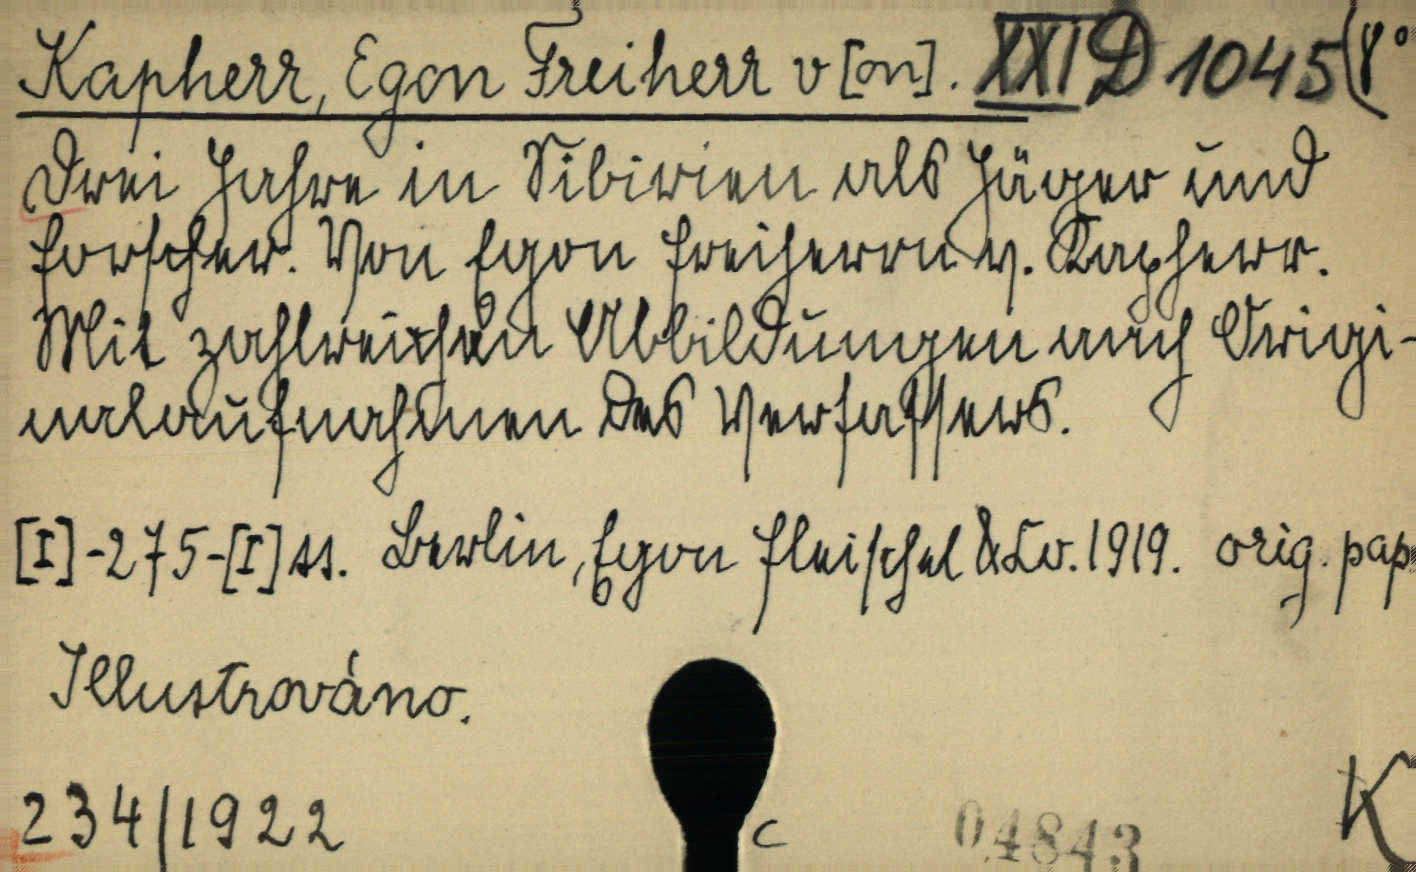 Kapherr, Egon Freiherr v[on]. XXI D 1045 (8°
Drei Jahre in Sibirien als Jäger und
Forscher. Von Egon Freiherrn v. Kapherr.
Mit zahlreichen Abbildungen nach Origi-
nalaufnahmen des Verfassers.
[I]-275-[I] ss. Berlin, Egon Fleischel & Co. 1919. orig. pap
Illustrováno.
234/1922
c
04843
K